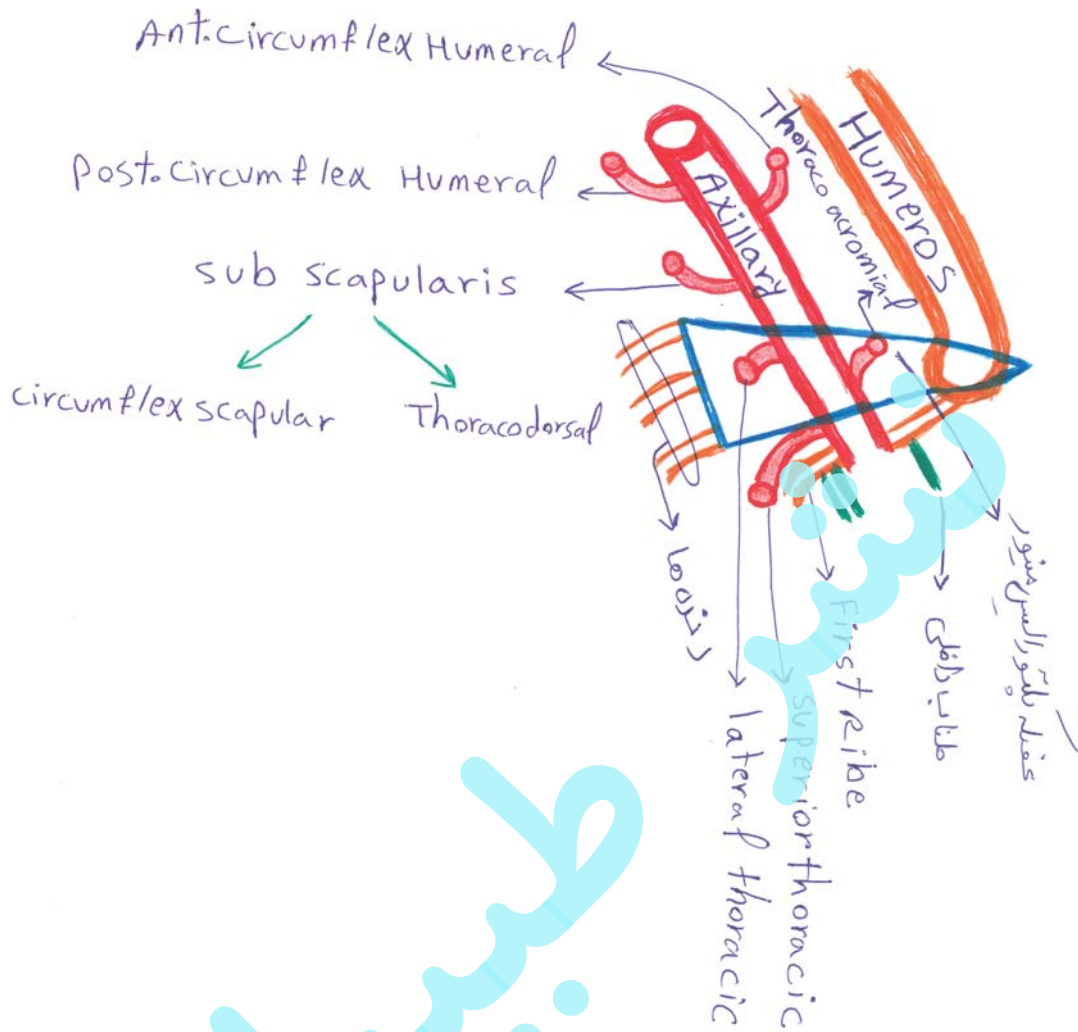 Ant.circumflex Humeral
Post.circumflex Humeral
sub scapularis
circumflex scapular
Thoracodorsal
Axillary
Thoraco acromial
Humeros
دنده ها
lateral thoracic
superior thoracic
First Ribe
طناب داخلی
عضله پکتورالیس مینور